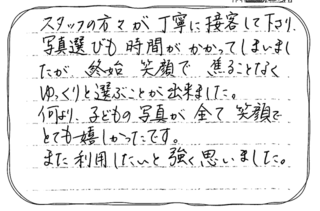 スタッフの方々が丁寧に接客して下さり、
写真選びも時間がかかってしまいまし
たが終始笑顔で焦ることなく
ゆっくりと選ぶことが出来ました。
何より、子どもの写真が全て笑顔で
とても嬉しかったです。
また利用したいと強く思いました。